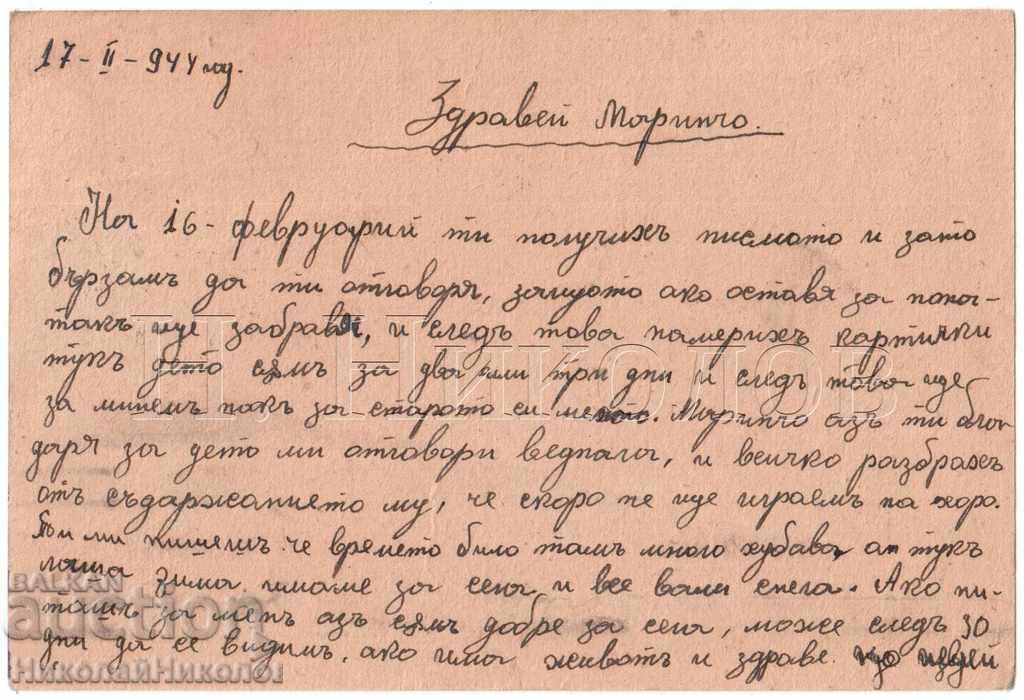 17-II-944 год.
Здравей Маринчо.
На 16-февруарий ти получихъ писмото и зато
бързамъ да ти отговоря, защото ако оставя за пона-
такъ ще забравя, и следъ това намерихъ картички
тукъ дето съмъ за два или три дни и следъ това ще
за минемъ пакъ за старото си место. Маринчо азъ ти благо
даря за дето ми отговори веднага, и всичко разбрахъ
отъ съдаржанието му, че скоро не ще играемъ на хоро.
Ти ми пишешъ че времето било тамъ много хубаво, а тукъ
лоша зима имаме за сега, и все вали снега. Ако пи-
ташъ за менъ азъ съмъ добре за сега, може следъ 30
дни да се видимъ, ако има животъ и здраве.
Н. Николов
BALKAN
auction
НиколайНиколов